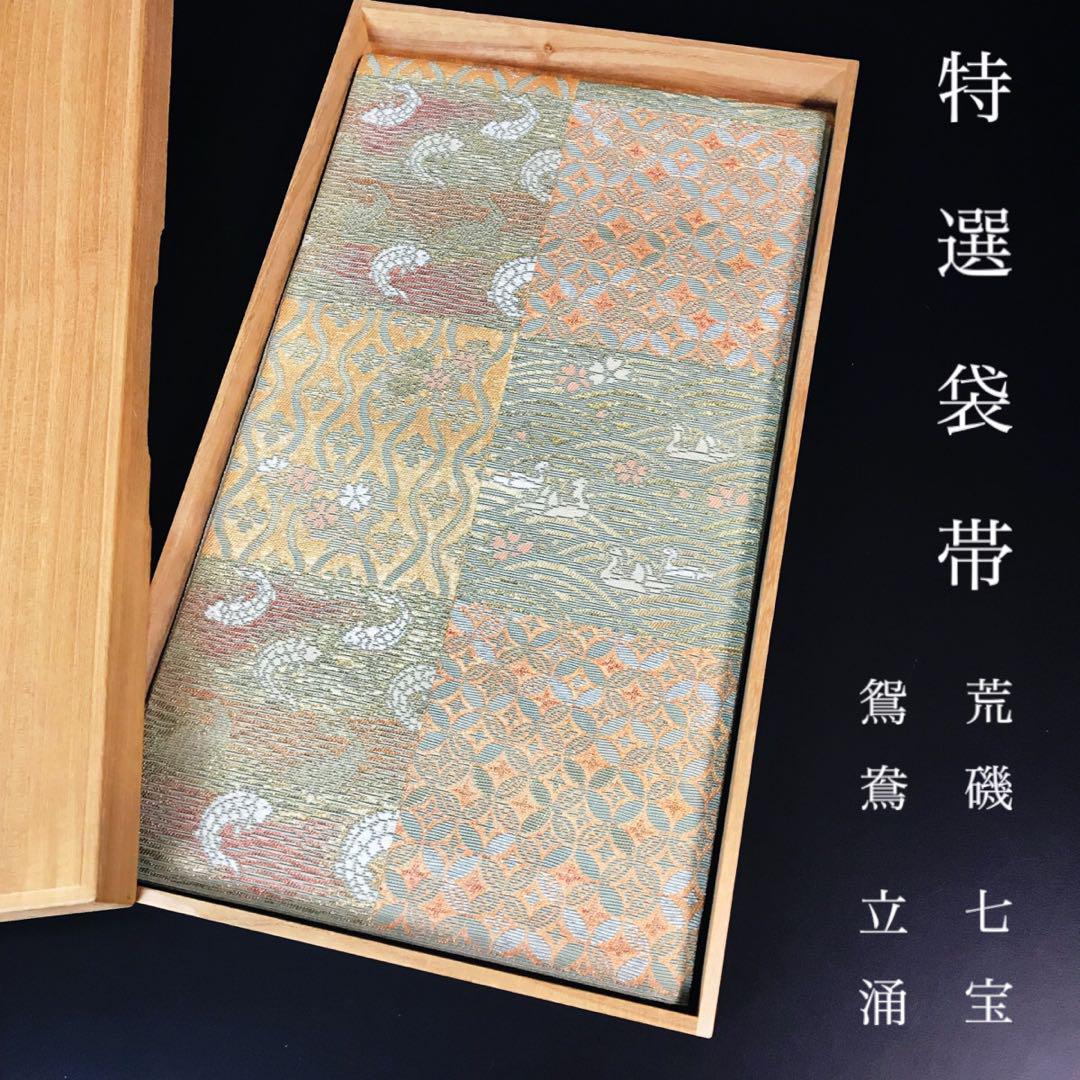 特選袋帯
荒磯 七宝
鴛鴦 立涌